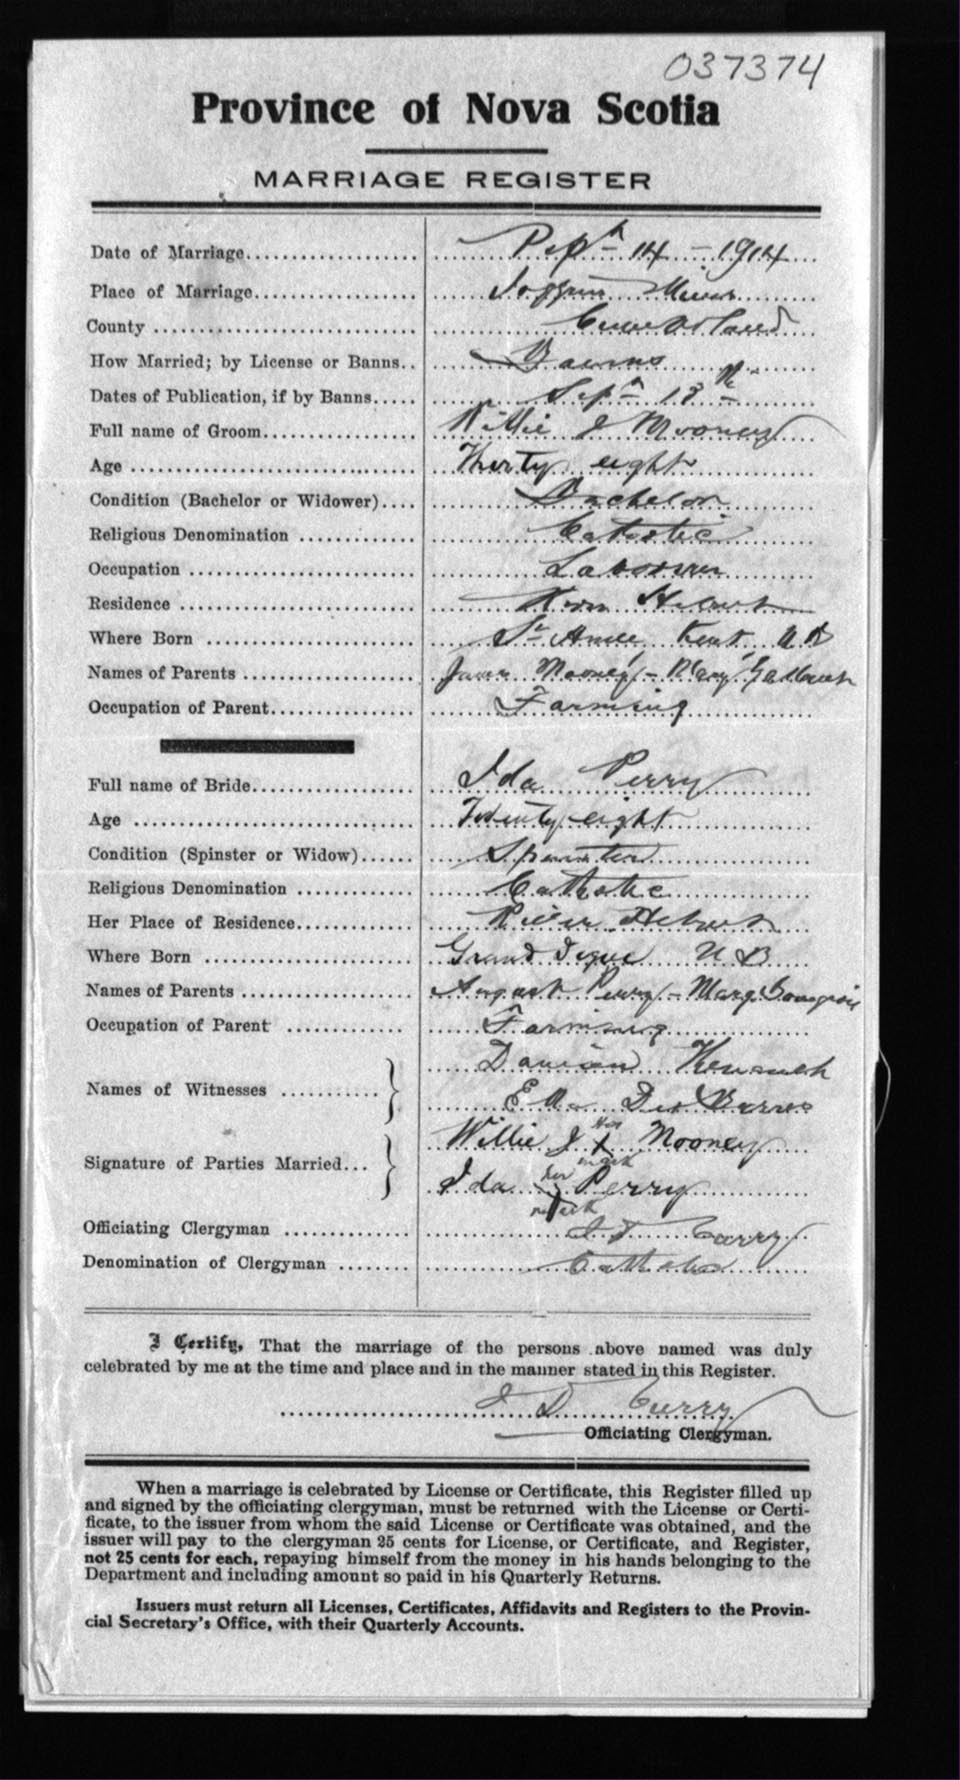 037374
Province of Nova Scotia
MARRIAGE REGISTER
Date of Marriage.................. Sept 14 - 1914
Place of Marriage.................. Joggins Mines
County .................. Cumberland
How Married; by License or Banns.. Banns
Dates of Publication, if by Banns..... Sept 13th
Full name of Groom.................. Willie J Mooney
Age .................. Thirty eight
Condition (Bachelor or Widower).... Bachelor
Religious Denomination ............. Catholic
Occupation .................. Laborer
Residence .................. River Hebert
Where Born .................. St Anne Kent N B
Names of Parents .................. James Mooney - Mary Gallant
Occupation of Parent.................. Farming
Full name of Bride.................. Ida Perry
Age .................. Twenty eight
Condition (Spinster or Widow)...... Spinster
Religious Denomination ............. Catholic
Her Place of Residence.............. River Hebert
Where Born .................. Grand Digue N B
Names of Parents .................. August Perry - Marg. Bourgeois
Occupation of Parent .............. Farming
Names of Witnesses ............ Damien
Ella Des Barres
Signature of Parties Married... Willie J his x mark Mooney
Ida her x mark Perry
Officiating Clergyman ............. J D Curry
Denomination of Clergyman ........ Catholic
I Certify, That the marriage of the persons above named was duly
celebrated by me at the time and place and in the manner stated in this Register.
J D Curry
Officiating Clergyman.
When a marriage is celebrated by License or Certificate, this Register filled up
and signed by the officiating clergyman, must be returned with the License or Certi-
ficate, to the issuer from whom the said License or Certificate was obtained, and the
issuer will pay to the clergyman 25 cents for License, or Certificate, and Register,
not 25 cents for each, repaying himself from the money in his hands belonging to the
Department and including amount so paid in his Quarterly Returns.
Issuers must return all Licenses, Certificates, Affidavits and Registers to the Provin-
cial Secretary's Office, with their Quarterly Accounts.